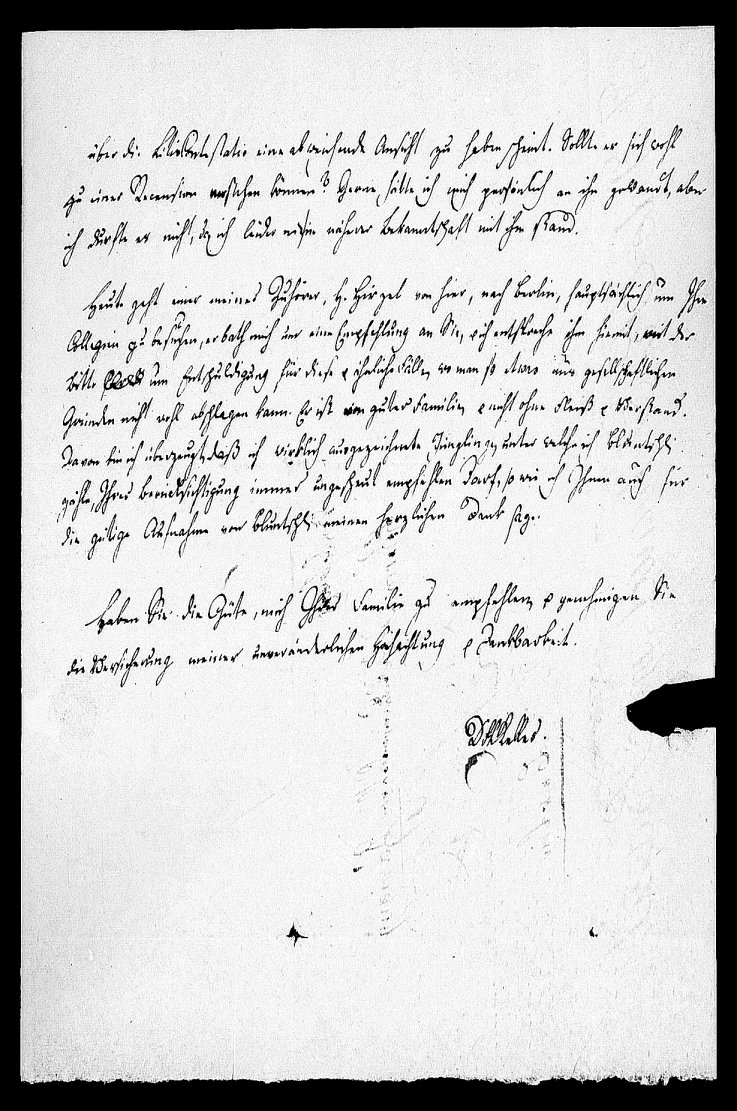 über die Litiscontestatio eine abweichende Ansicht zu haben scheint. Sollte er sich wohl
zu einer Recension verstehen können? Gerne hätte ich mich persönlich an ihn gewandt, aber
ich durfte es nicht, da ich leider nie in näherer Bekanntschaft mit ihm stand.
Heute geht einer meiner Zuhörer, H. Hirzel von hier, nach Berlin, hauptsächlich um Ihre
Collegien zu besuchen, er bath mich um eine Empfehlung an Sie, u ich entspreche ihm hiemit, mit der
Bitte um Entschuldigung für diese u ähnliche Fälle, wo man so etwas aus gesellschaftlichen
Gründen nicht wohl abschlagen kann. Er ist von guter Familie, u nicht ohne Fleiß u Verstand.
Davon bin ich überzeugt, daß ich wirklich ausgezeichnete Jünglinge, unter welche ich Bluntschli
zähle, Ihrer Berücksichtigung immer ungescheut empfehlen darf, so wie ich Ihnen auch für
die gütige Aufnahme von Bluntschli meinen herzlichen Dank sage.
Haben Sie die Güte, mich Ihrer Familie zu empfehlen, u genehmigen Sie
die Versicherung meiner unveränderlichen Hochachtung u Dankbarkeit.
Keller.